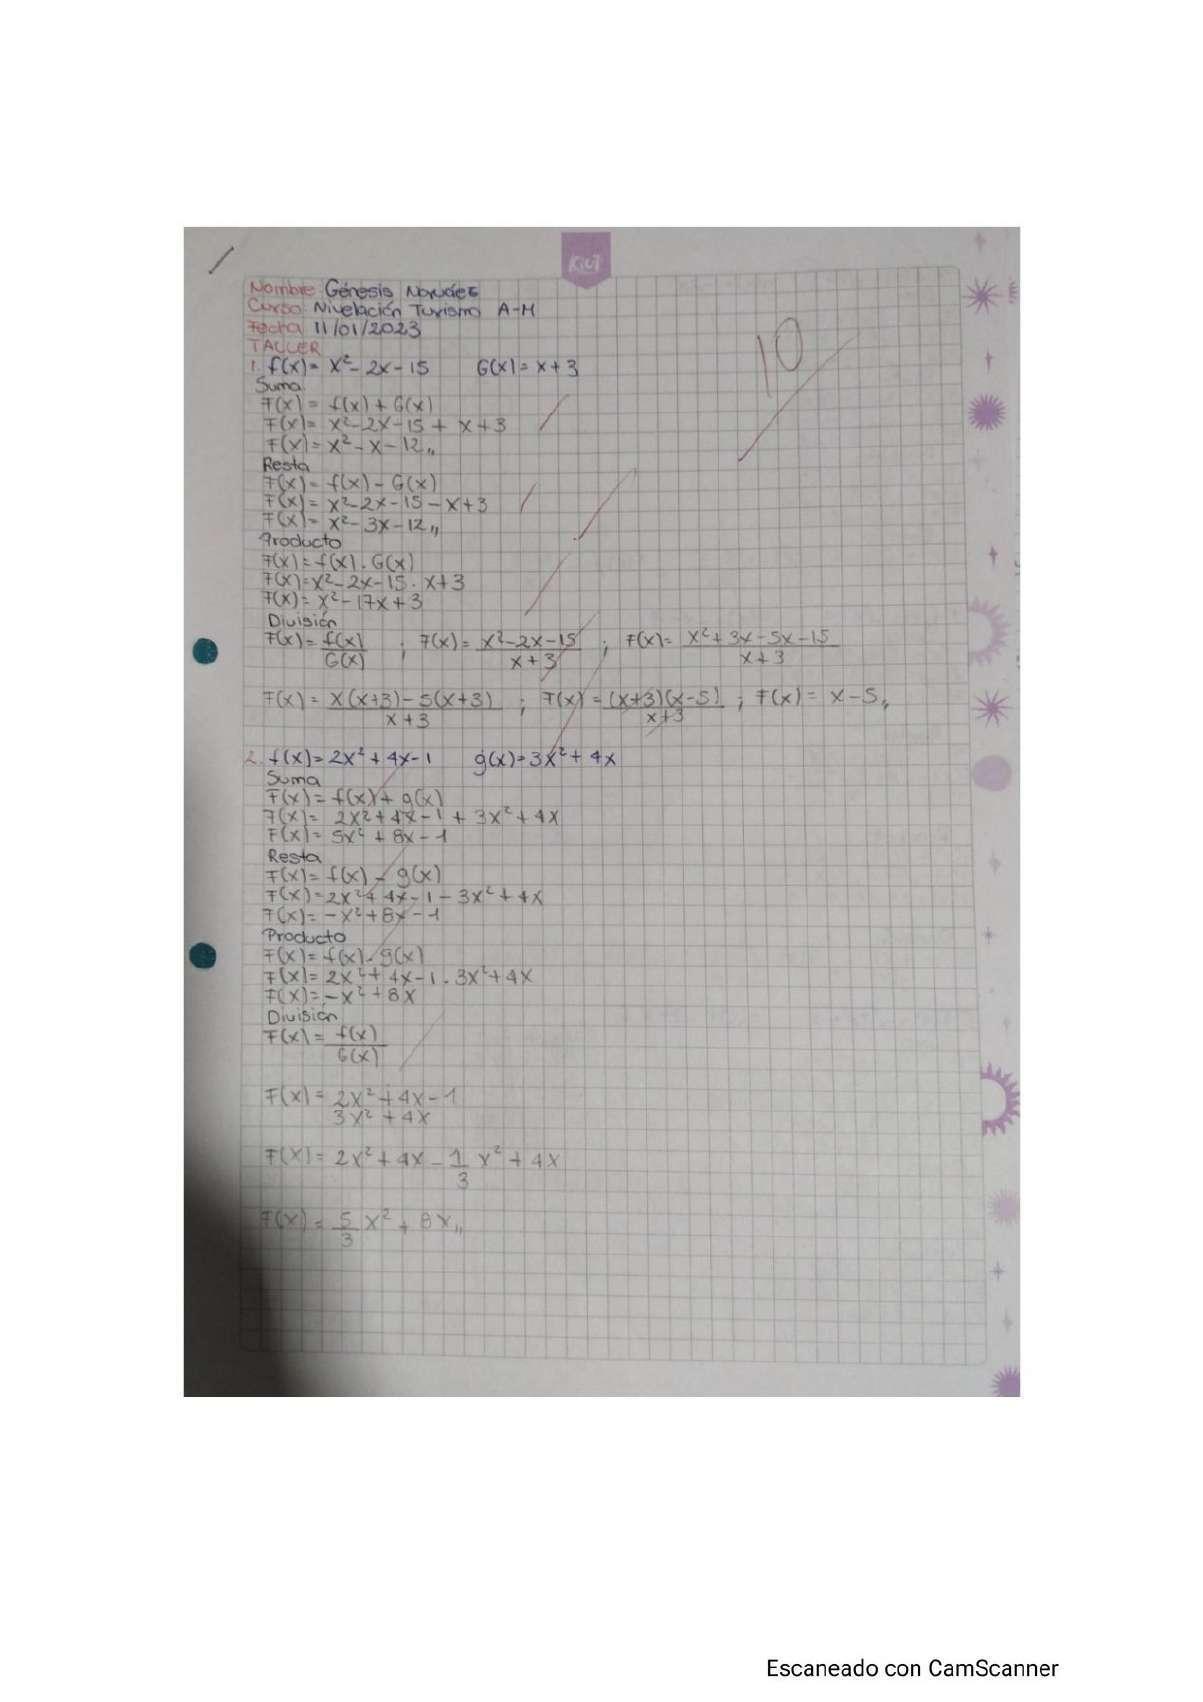 KIUT
Nombre: Génesis
Curso: Nivelación Turismo A-M
Fecha 11/01/2023
10
TALLER
1. f(x)= x²- 2x-15 G(x)= x+3
Suma
F(x)= f(x)+G(x)
F(x)= x²-2x-15 + x+3
F(x)= x²-x-12,,
Resta
F(x)= f(x)-G(x)
F(x)= x²-2x-15-x+3
F(x)= x²-3x-12,,
Producto
F(x)=f(x).G(x)
F(x)=x²-2x-15.x+3
F(x)= x²-17x+3
División
F(x)= f(x)/G(x) ; F(x)= x²-2x-15/x+3 ; F(x)= x²+3x-5x-15/x+3
F(x)= x(x+3)-5(x+3)/x+3 ; F(x)=(x+3)(x-5)/x+3 ; F(x)= x-5,,
2. f(x)=2x²+4x-1 g(x)=3x²+4x
Suma
F(x)= f(x)+g(x)
F(x)= 2x²+4x-1+3x²+4x
F(x)= 5x²+8x-1
Resta
F(x)= f(x)-g(x)
F(x)=2x²+4x-1-3x²+4x
F(x)=-x²+8x-1
Producto
F(x)=f(x).g(x)
F(x)=2x²+4x-1.3x²+4x
F(x)=-x²+8x
División
F(x)= f(x)/G(x)
F(x)= 2x²+4x-1
3x²+4x
F(x)= 2x²+4x-1/3 x²+4x
F(x)= 5/3 x²+8x,,
Escaneado con CamScanner